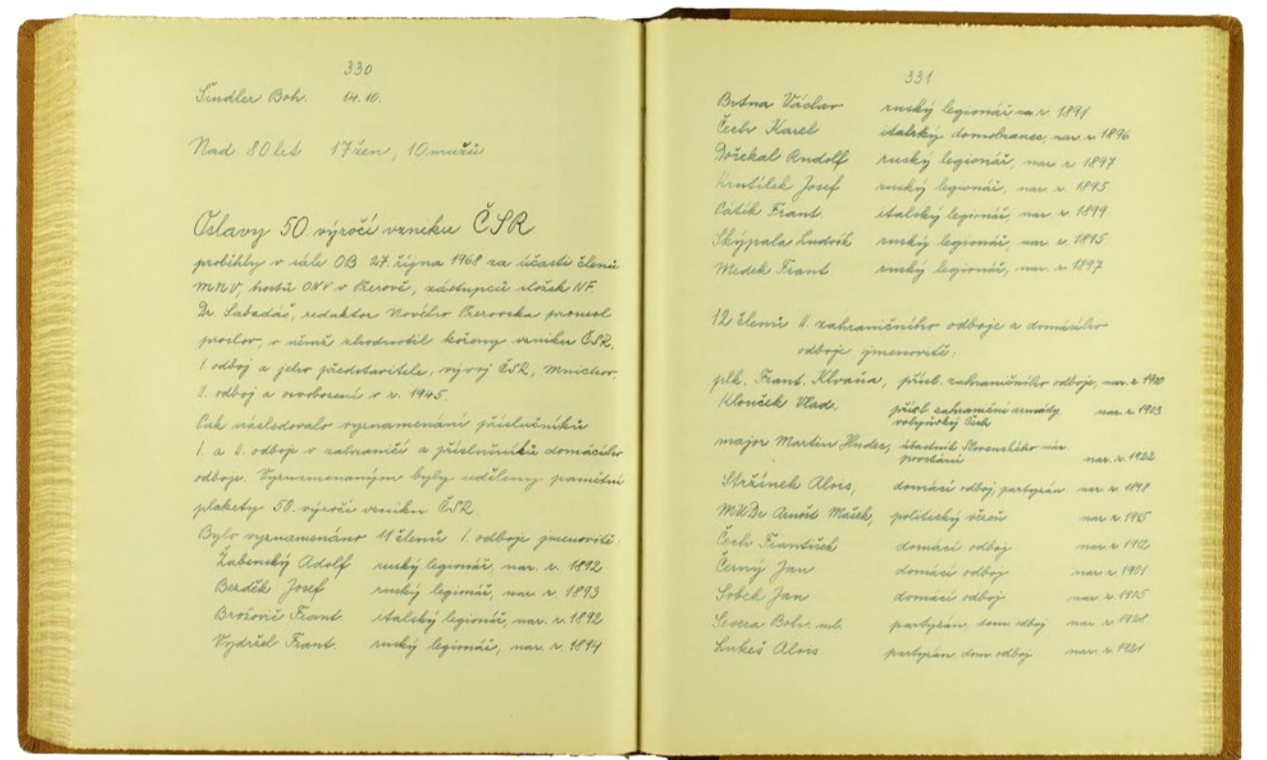 330
Šindler Boh. 14.10.
Nad 80 let 17 žen, 10 mužů
Oslavy 50 výročí vzniku ČSR
proběhly v sále OB 27. října 1968 za účasti členů
MNV, hostů ONV v Přerově, zástupců složek NF.
Dr. Sabadáš, redaktor Nového Přerovska pronesl
proslov, v němž zhodnotil kořeny vzniku ČSR,
I odboj a jeho představitele, vývoj ČSR, Mnichov,
II. odboj a osvobození v r. 1945.
Pak následovalo vyznamenání příslušníků
I. a II. odboje v zahraničí a příslušníků domácího
odboje. Vyznamenaným byly uděleny pamětní
plakety 50. výročí vzniku ČSR.
Bylo vyznamenáno 11 členů I. odboje jmenovitě:
Žabenský Adolf ruský legionář, nar. r. 1892
Berděk Josef ruský legionář, nar. r. 1893
Brožovič Frant. italský legionář, nar. r. 1892
Vydržel Frant. ruský legionář, nar. r. 1894
331
Brtna Václav ruský legionář nar r 1891
Čech Karel italský domobranec, nar. r. 1896
Dořekal Rudolf ruský legionář, nar. r 1897
Krutílek Josef ruský legionář, nar. r. 1895
Pátík Frant. italský legionář, nar. r. 1899
Skýpala Ludvík ruský legionář, nar. r. 1895
Medek Frant ruský legionář, nar. r. 1897
12 členů II. zahraničního odboje a domácího
odboje jmenovitě:
plk. Frant. Klvaňa, přísl. zahraničního odboje, nar. r. 1910
Klouček Vlad. přísl zahraniční armády nar. r. 1903
volyňský Čech
major Martin Hudec, účastník Slovenského nár
povstání nar. r. 1922
Stržínek Alois, domácí odboj, partyzán nar. r. 1898
MUDr Arnošt Mášek, politický vězeň nar r. 1915
Čech František domácí odboj nar r. 1912
Černý Jan domácí odboj nar r. 1901
Sobek Jan domácí odboj nar r. 1905
Severa Boh. ml. partyzán, dom. odboj nar r. 1928
Lukeš Alois partyzán, dom. odboj nar. r. 1921